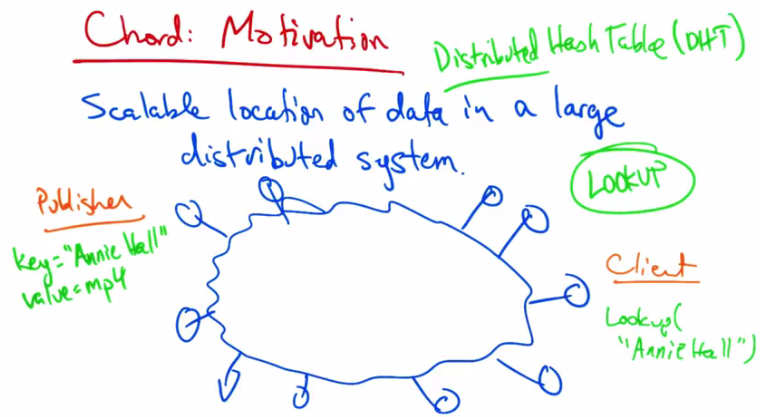 Chord: Motivation
Distributed Hash Table (DHT)
Scalable location of data in a large
distributed system.
LOOKUP
Publisher
key="Annie Hall"
value=mp4
Client
Lookup(
"Annie Hall")